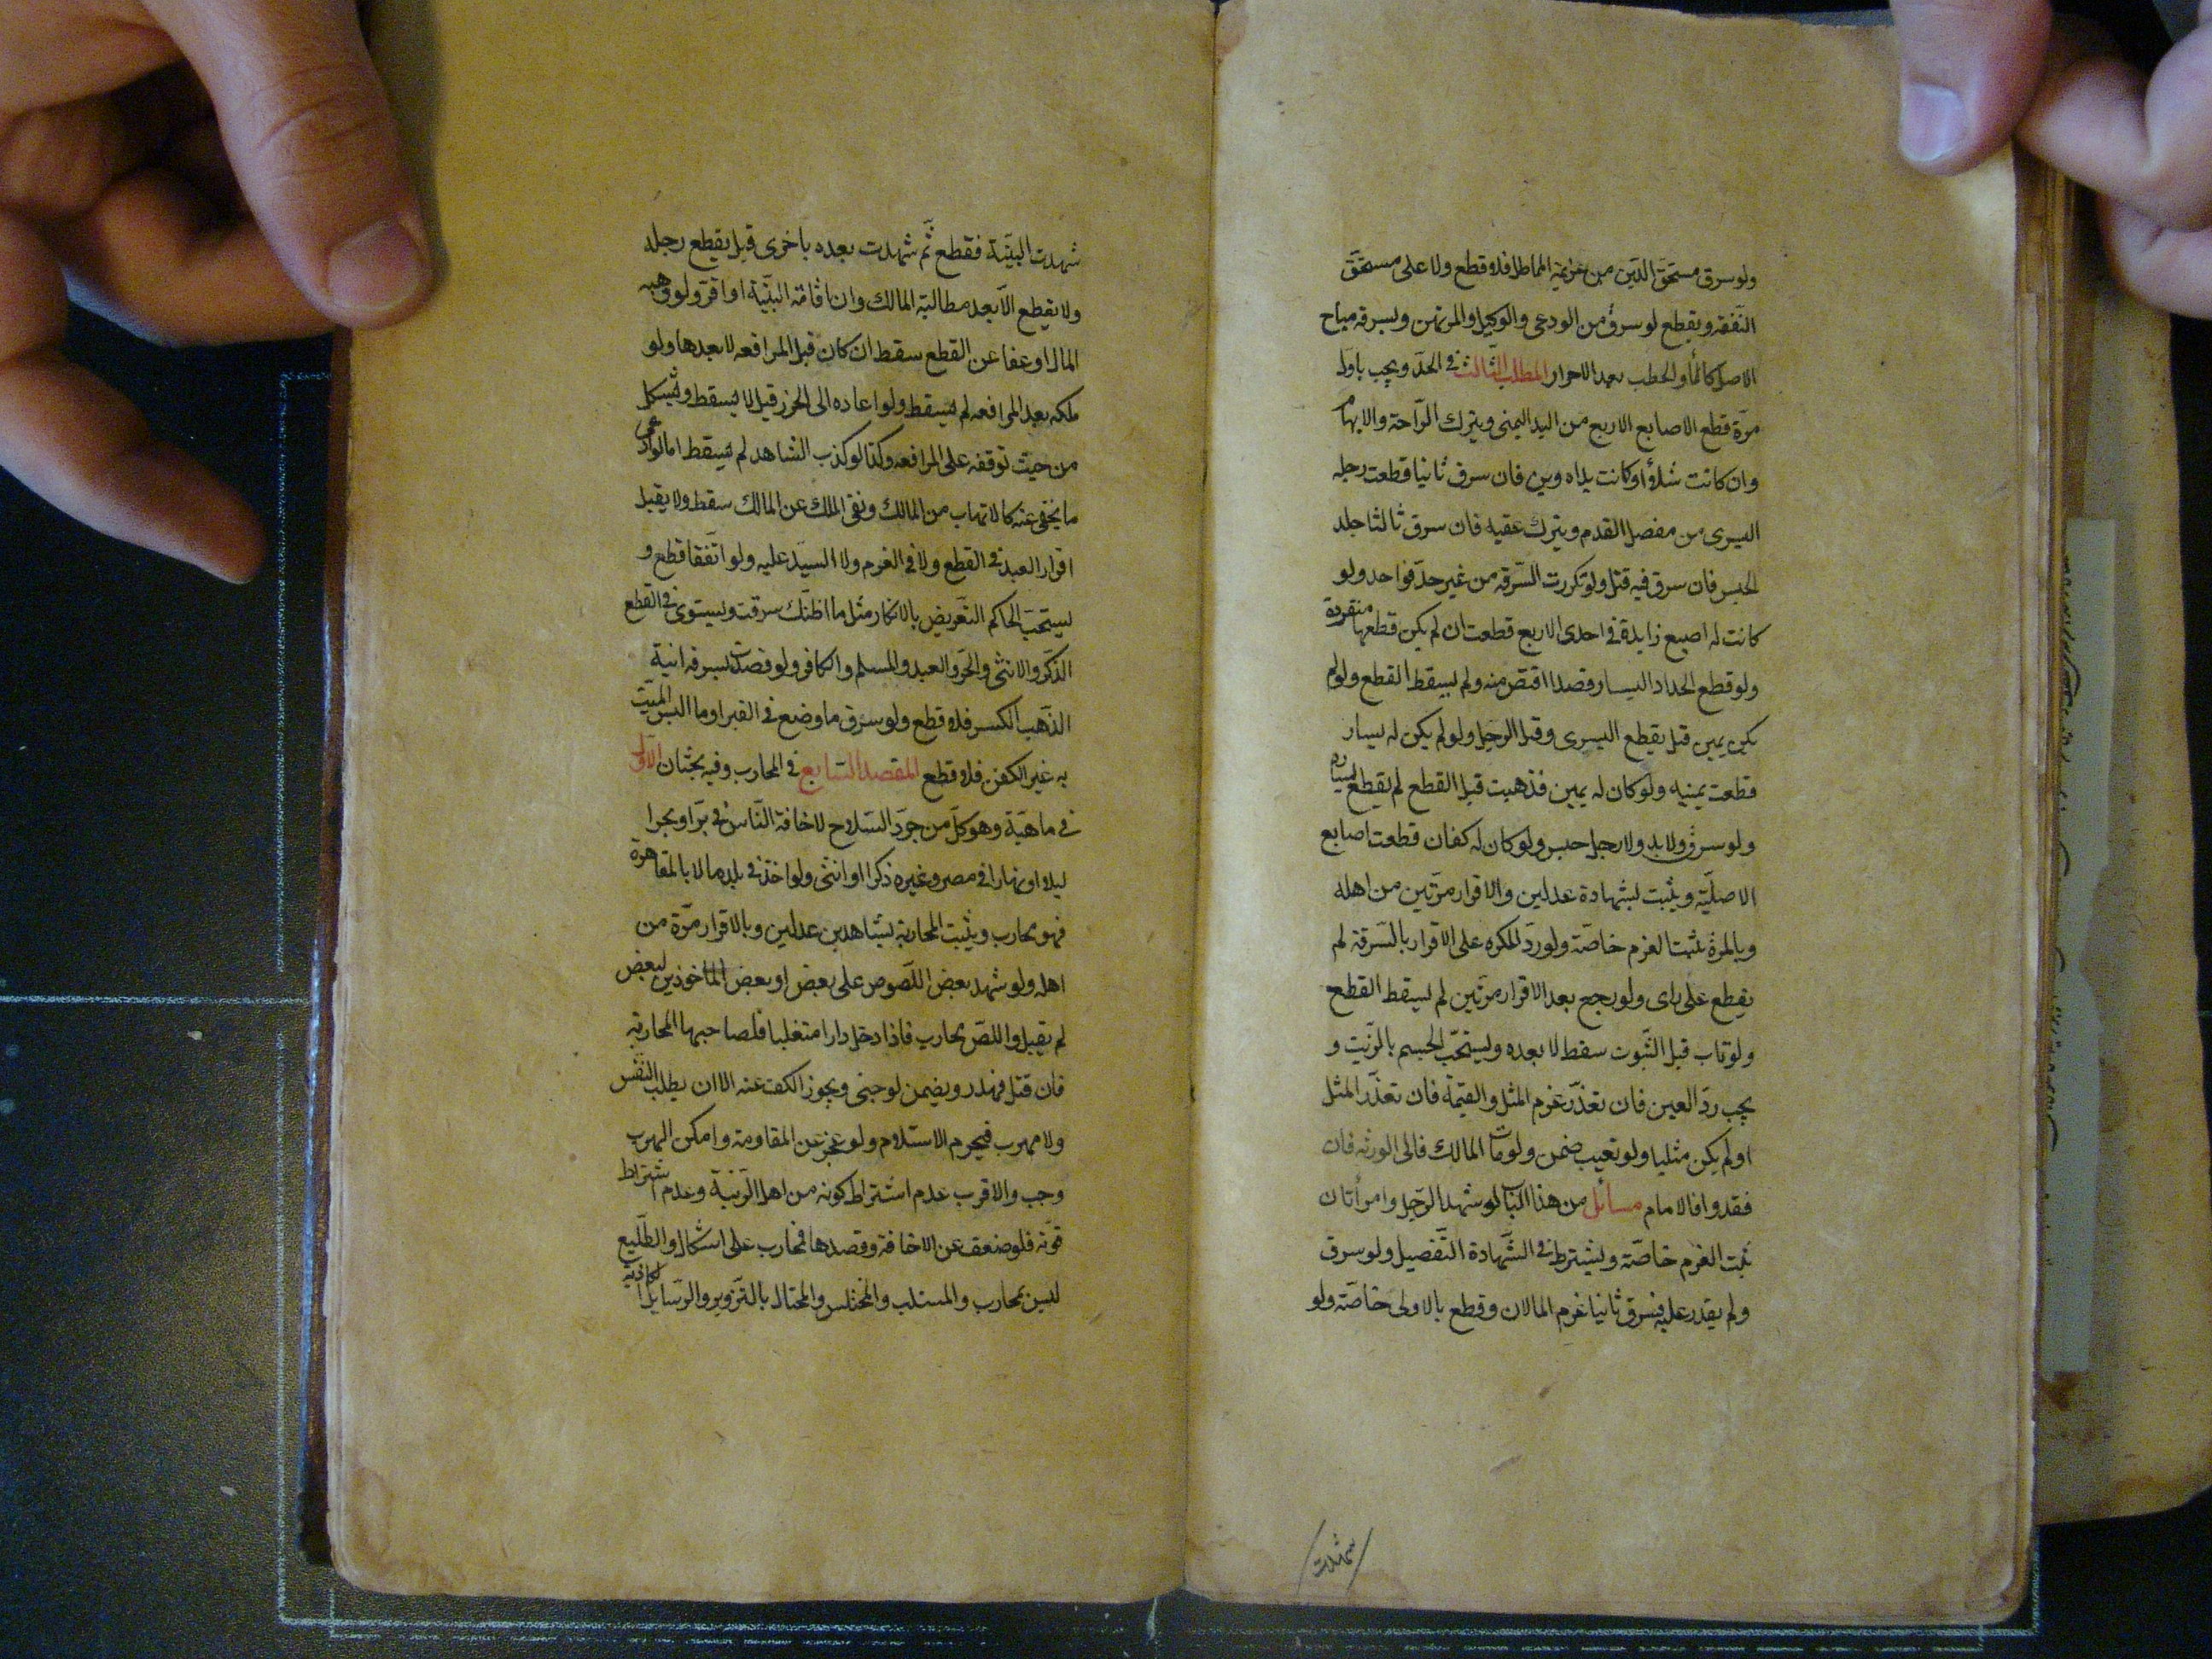 ولو سرق مستحق الدين من غريمه المماطل فلا قطع ولا على مستحق
النفقه ويقطع لو سرق من الودعى والوكيل والمرتهن وبسرقه مباح
الاصل كالماء والحطب بعد الاحراز المطلب الثالث فى الحد ويجب باول
مرة قطع الاصابع الاربع من اليد اليمنى ويترك الراحة والابهام
وان كانت شلاء او كانت يداه وين فان سرق ثانيا قطعت رجله
اليسرى من مفصل القدم ويترك عقبه فان سرق ثالثا خلد
الحبس فان سرق فيه قتل ولو تكررت السرقه من غير حد فواحد ولو
كانت له اصبع زايدة فى احدى الاربع قطعت ان لم يكن قطعها منفردة
ولو قطع الحداد اليسار قصدا اقتص منه ولم يسقط القطع ولو لم
يكن يمين قيل يقطع اليسرى وقيل الرجل ولو لم يكن له يسار
قطعت يمينه ولو كان له يمين فذهبت قبل القطع لم يقطع يساره
ولو سرق ولا يد ولا رجل حبس ولو كان له كفان قطعت اصابع
الاصلية ويثبت بشهادة عدلين والاقرار مرتين من اهله
وبالمرة يثبت الغرم خاصة ولو رد المكره على الاقرار بالسرقة لم
يقطع على راى ولو رجع بعد الاقرار مرتين لم يسقط القطع
ولو تاب قبل الثبوت سقط لا بعده ويستحب الحسم بالزيت و
يجب رد العين فان تعذر غرم المثل والقيمة فان تعذر المثل
او لم يكن مثليا ولو تعيب ضمن ولو مات المالك فالى الورثه فان
فقدوا فالامام مسائل من هذا الباب لو شهد الرجل وامراتان
ثبت الغرم خاصة ويشترط فى الشهادة التفصيل ولو سرق
ولم يقدر عليه فسرق ثانيا غرم المالان وقطع بالاولى خاصة ولو
شهدت البينة فقطع ثم شهدت بعده باخرى قيل يقطع رجله
ولا يقطع الا بعد مطالبة المالك وان اقامة البينة او اقر ولو وهبه
المال او عفا عن القطع سقط ان كان قبل المرافعه لا بعدها ولو
ملكه بعد المرافعه لم يسقط ولو اعاده الى الحرز قيل لا يسقط ويشكل
من حيث توقفه على المرافعه وكذا لو كذب الشاهد لم يسقط اما لو ادعى
ما يخفى عنه كالاتهاب من المالك ونفى الملك عن المالك سقط ولا يقبل
اقرار العبد فى القطع ولا فى الغرم ولا السيد عليه ولو اتفقا قطع و
يستحب للحاكم التعريض بالانكار مثل ما اظنك سرقت ويستوى فى القطع
الذكر والانثى والحر والعبد والمسلم والكافر ولو قصد بسرقه انية
الذهب الكسر فلا قطع ولو سرق ما وضع فى القبر او ما البس الميت
به غير الكفن فلا قطع المقصد السابع فى المحارب وفيه بحثان الاول
فى ماهية وهو كل من جرد السلاح لاخافة الناس فى بر او بحر
ليلا او نهارا فى مصر وغيره ذكرا او انثى ولو اخذ فى بلد مالا بالمقاهرة
فهو محارب ويثبت المحاربة بشاهدين عدلين وبالاقرار مرة من
اهله ولو شهد بعض اللصوص على بعض او بعض الماخوذين لبعض
لم يقبل واللص محارب فاذا دخل دارا متغلبا فلصاحبها المحاربة
فان قتل فهدر ويضمن لو جنى ويجوز الكف عنه الا ان يطلب النفس
ولا مهرب فيحرم الاستلام ولو عجز عن المقاومة وامكن الهرب
وجب والاقرب عدم اشتراط كونه من اهل الريبة وعدم اشتراط
قوته فلو ضعف عن الاخافة وقصدها فمحارب على اشكال والطليع
ليس بمحارب والمستلب والمختلس والمحتال بالتزوير والرسايل الكاذبة
شهدت